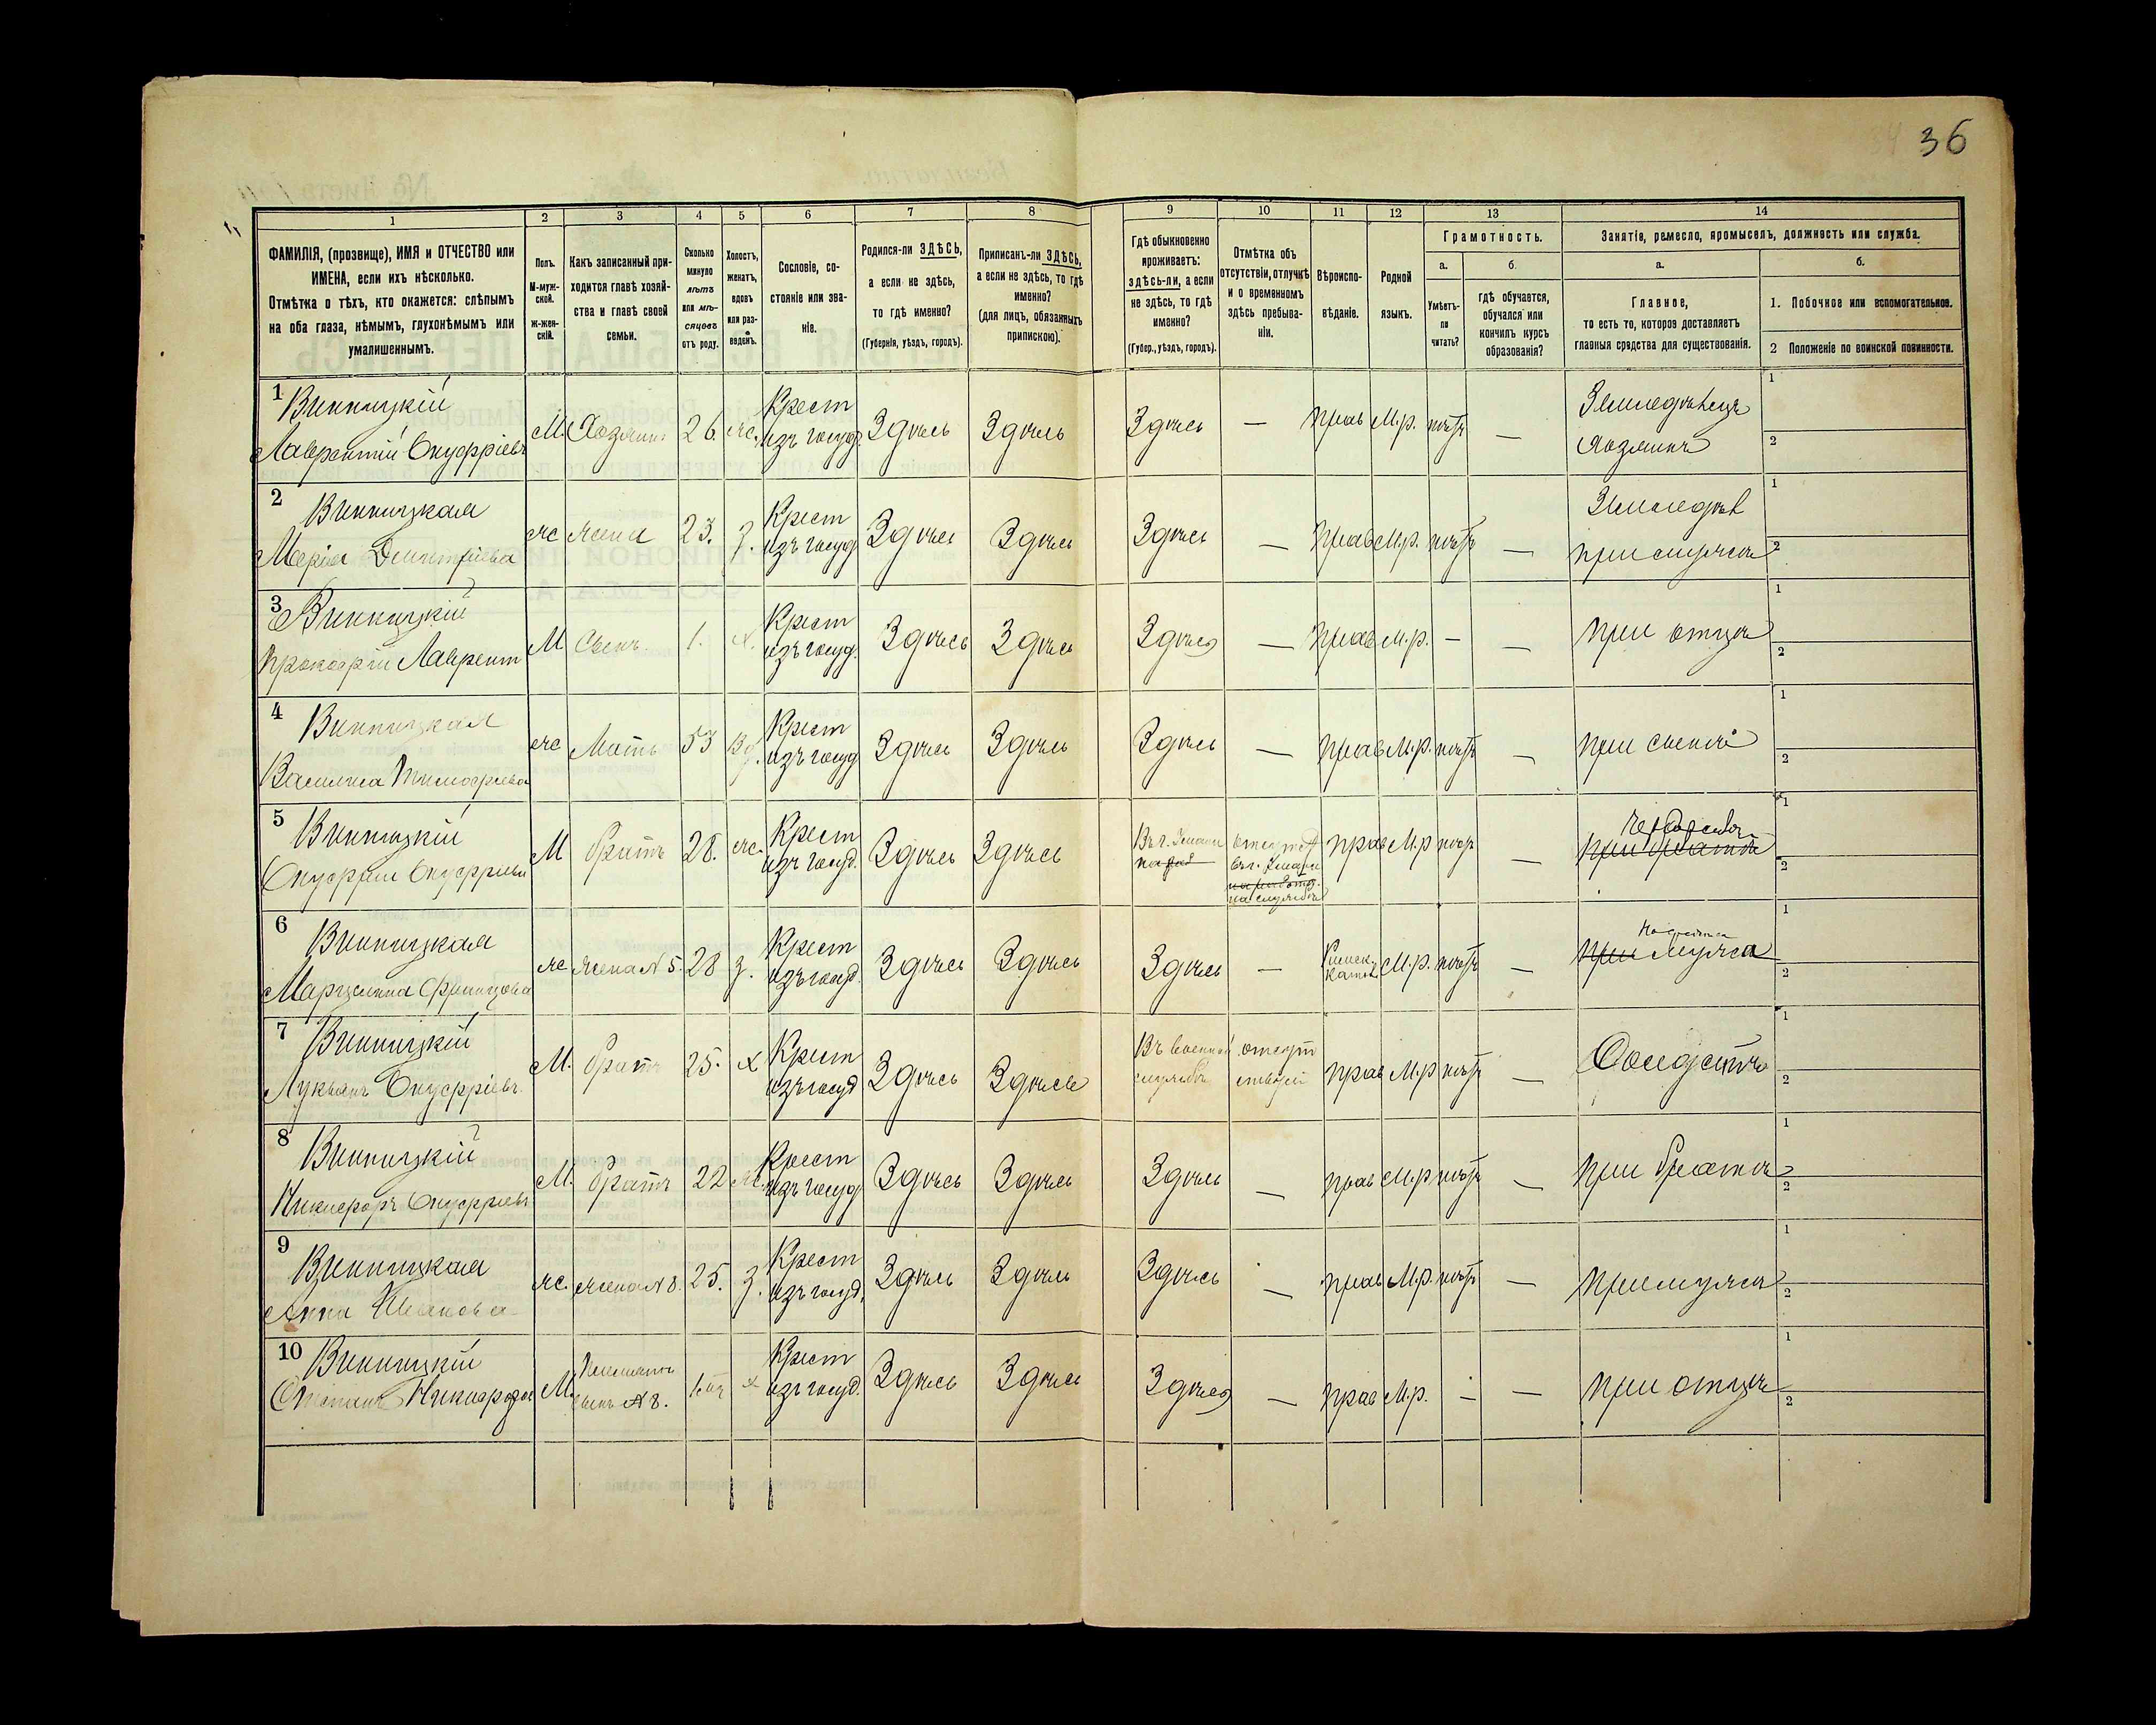 36
1 2 3 4 5 6 7 8 9 10 11 12 13 14
ФАМИЛІЯ, (прозвище), ИМЯ и ОТЧЕСТВО или
ИМЕНА, если ихъ нѣсколько.
Отмѣтка о тѣхъ, кто окажется: слѣпымъ
на оба глаза, нѣмымъ, глухонѣмымъ или
умалишеннымъ.
Полъ.
М-муж-
ской.
ж-жен-
скій.
Какъ записанный при-
ходится главѣ хозяй-
ства и главѣ своей
семьи.
Сколько
минуло
лѣтъ
или мѣ-
сяцевъ
отъ роду.
Холостъ,
женатъ,
вдовъ
или раз-
веденъ.
Сословіе, со-
стояніе или зва-
ніе.
Родился-ли ЗДѢСЬ,
а если не здѣсь,
то гдѣ именно?
(Губернія, уѣздъ, городъ).
Приписанъ-ли ЗДѢСЬ,
а если не здѣсь, то гдѣ
именно?
(для лицъ, обязанныхъ
припискою).
Гдѣ обыкновенно
проживаетъ:
здѣсь-ли, а если
не здѣсь, то гдѣ
именно?
(Губер., уѣздъ, городъ).
Отмѣтка объ
отсутствіи, отлучкѣ
и о временномъ
здѣсь пребыва-
ніи.
Вѣроиспо-
вѣданіе.
Родной
языкъ.
Грамотность.
а.
Умѣетъ-
ли
читать?
б.
гдѣ обучается,
обучался или
кончилъ курсъ
образованія?
Занятіе, ремесло, промыселъ, должность или служба.
а.
Главное,
то есть то, которое доставляетъ
главныя средства для существованія.
б.
1. Побочное или вспомогательное.
2 Положеніе по воинской повинности.
1 Винницкій
Лаврентій Онуфріевъ
М. Хозяинъ 26. ж. Крест
изъ госуд. Здѣсь Здѣсь Здѣсь — прав М.р. нѣтъ — Земледѣлецъ
Хозяинъ
1
2
2 Винницкая
Марія Дмитріева
ж жена 23. з. Крест
изъ госуд Здѣсь Здѣсь Здѣсь — прав М.р. нѣтъ — Земледѣл
при мужѣ
1
2
3 Винницкій
Прокофій Лаврент
М Сынъ. 1. х. Крест
изъ госуд. Здѣсь Здѣсь Здѣсь — прав М.р. — — при отцѣ
1
2
4 Винницкая
Василиса Тимофѣева
ж Мать 53 Вд. Крест
изъ госуд Здѣсь Здѣсь Здѣсь — прав М.р. нѣтъ — при сынѣ
1
2
5 Винницкій
Онуфрій Онуфріевъ
М братъ 28. ж. Крест
изъ госуд. Здѣсь Здѣсь
на службѣ
прав М.р нѣтъ —
при братѣ
1
2
6 Винницкая
Марцелина
ж жена N 5. 28 з. Крест
изъ госуд. Здѣсь Здѣсь Здѣсь — Римск.
Катол М.р. нѣтъ —
при мужа
1
2
7 Винницкій
Лукьянъ Онуфріевъ.
М. братъ 25. х Крест
изъ госуд Здѣсь Здѣсь Въ военной
службѣ отсут
прав М.р нѣтъ — Солдатъ
1
2
8 Винницкій
Никифоръ Онуфріевъ
М. братъ 22 ж. Крест
изъ госуд Здѣсь Здѣсь Здѣсь — прав М.р нѣтъ — при братѣ
1
2
9 Винницкая
Анна Иванова
ж. жена N 8. 25. з. Крест
изъ госуд. Здѣсь Здѣсь Здѣсь — прав М.р. нѣтъ — при мужѣ
1
2
10 Винницкій
Степанъ Никифоров
М.
сынъ N 8.
х Крест
изъ госуд. Здѣсь Здѣсь Здѣсь — прав М.р. — — при отцѣ
1
2